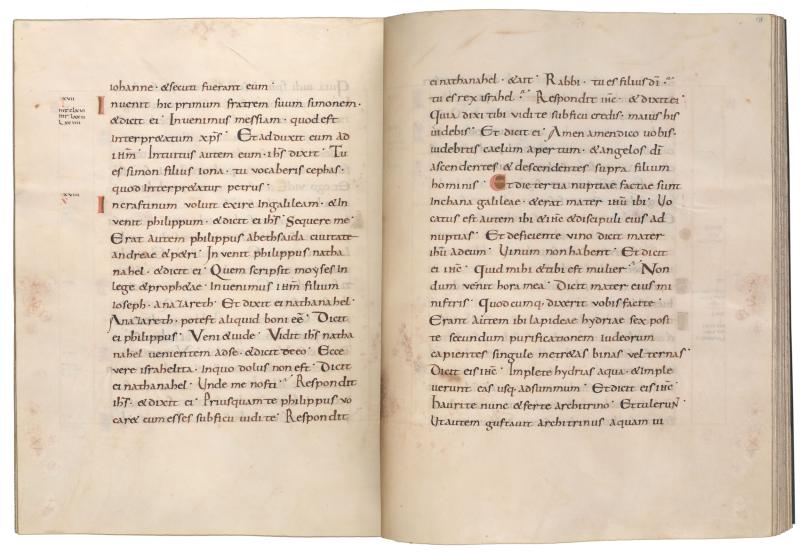 iohanne · & secuti fuerant eum ·
XVII
Inuenit hic primum fratrem suum simonem ·
& dicit ei · Inuenimus messiam · quod est
interpr&atum xps · Et adduxit eum ad
ihm · Intuitus autem eum · ihs dixit · Tu
es simon filius iona · tu uocaberis cephas ·
quod interpr&atur petrus ·
XVIII
In crastinum uoluit exire in galileam · & in
uenit philippum · & dicit ei ihs · Sequere me ·
Erat autem philippus a bethsaida ciuitate
andreae & p&ri · Inuenit philippus natha
nahel · & dicit ei · Quem scripsit moyses in
lege & proph&ae · Inuenimus ihm filium
ioseph · A nazareth · Et dixit ei nathanahel ·
A nazareth · potest aliquid boni ee · Dicit
ei philippus · Veni & uide · Vidit ihs natha
nahel uenientem ad se · & dicit de eo · Ecce
uere israhelita · in quo dolus non est · Dicit
ei nathanahel · Unde me nosti · Respondit
ihs · & dixit ei · Priusquam te philippus uo
car& cum esses sub ficu uidi te · Respondit
ei nathanahel · & ait · Rabbi · tu es filius di ·
tu es rex israhel · Respondit ihc · & dixit ei ·
Quia dixi tibi uidi te sub ficu credis · maius his
uidebis · Et dicit ei · Amen amen dico uobis ·
uidebitis caelum apertum · & angelos di
ascendentes & descendentes supra filium
hominis · Et die tertia nuptiae factae sunt
in chana galileae · & erat mater ihu ibi · Uo
catus est autem ibi & ihc & discipuli eius ad
nuptias · Et deficiente uino dicit mater
ihu ad eum · Uinum non habent · Et dicit
ei ihc · Quid mihi & tibi est mulier · Non
dum uenit hora mea · Dicit mater eius mi
nistris · Quodcumq; dixerit uobis facite ·
Erant autem ibi lapideae hydriae sex posi
te secundum purificationem iudeorum
capientes singule metr&as binas uel ternas ·
Dicit eis ihc · Implete hydrias aqua · & imple
uerunt eas usq; ad summum · Et dicit eis ihc ·
Haurite nunc & ferte architrino · Et tulerunt ·
Ut autem gustauit architrinus aquam ui